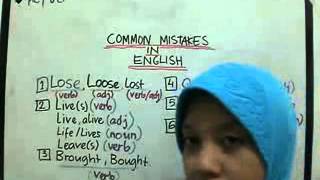 COMMON MISTAKES
IN
ENGLISH
1 Lose, Loose, Lost
(verb) (adj) (verb/adj)
2 Live(s) (verb)
Live, alive (adj)
Life/Lives (noun)
Leave(s) (verb)
3 Brought, Bought
(verb)
4